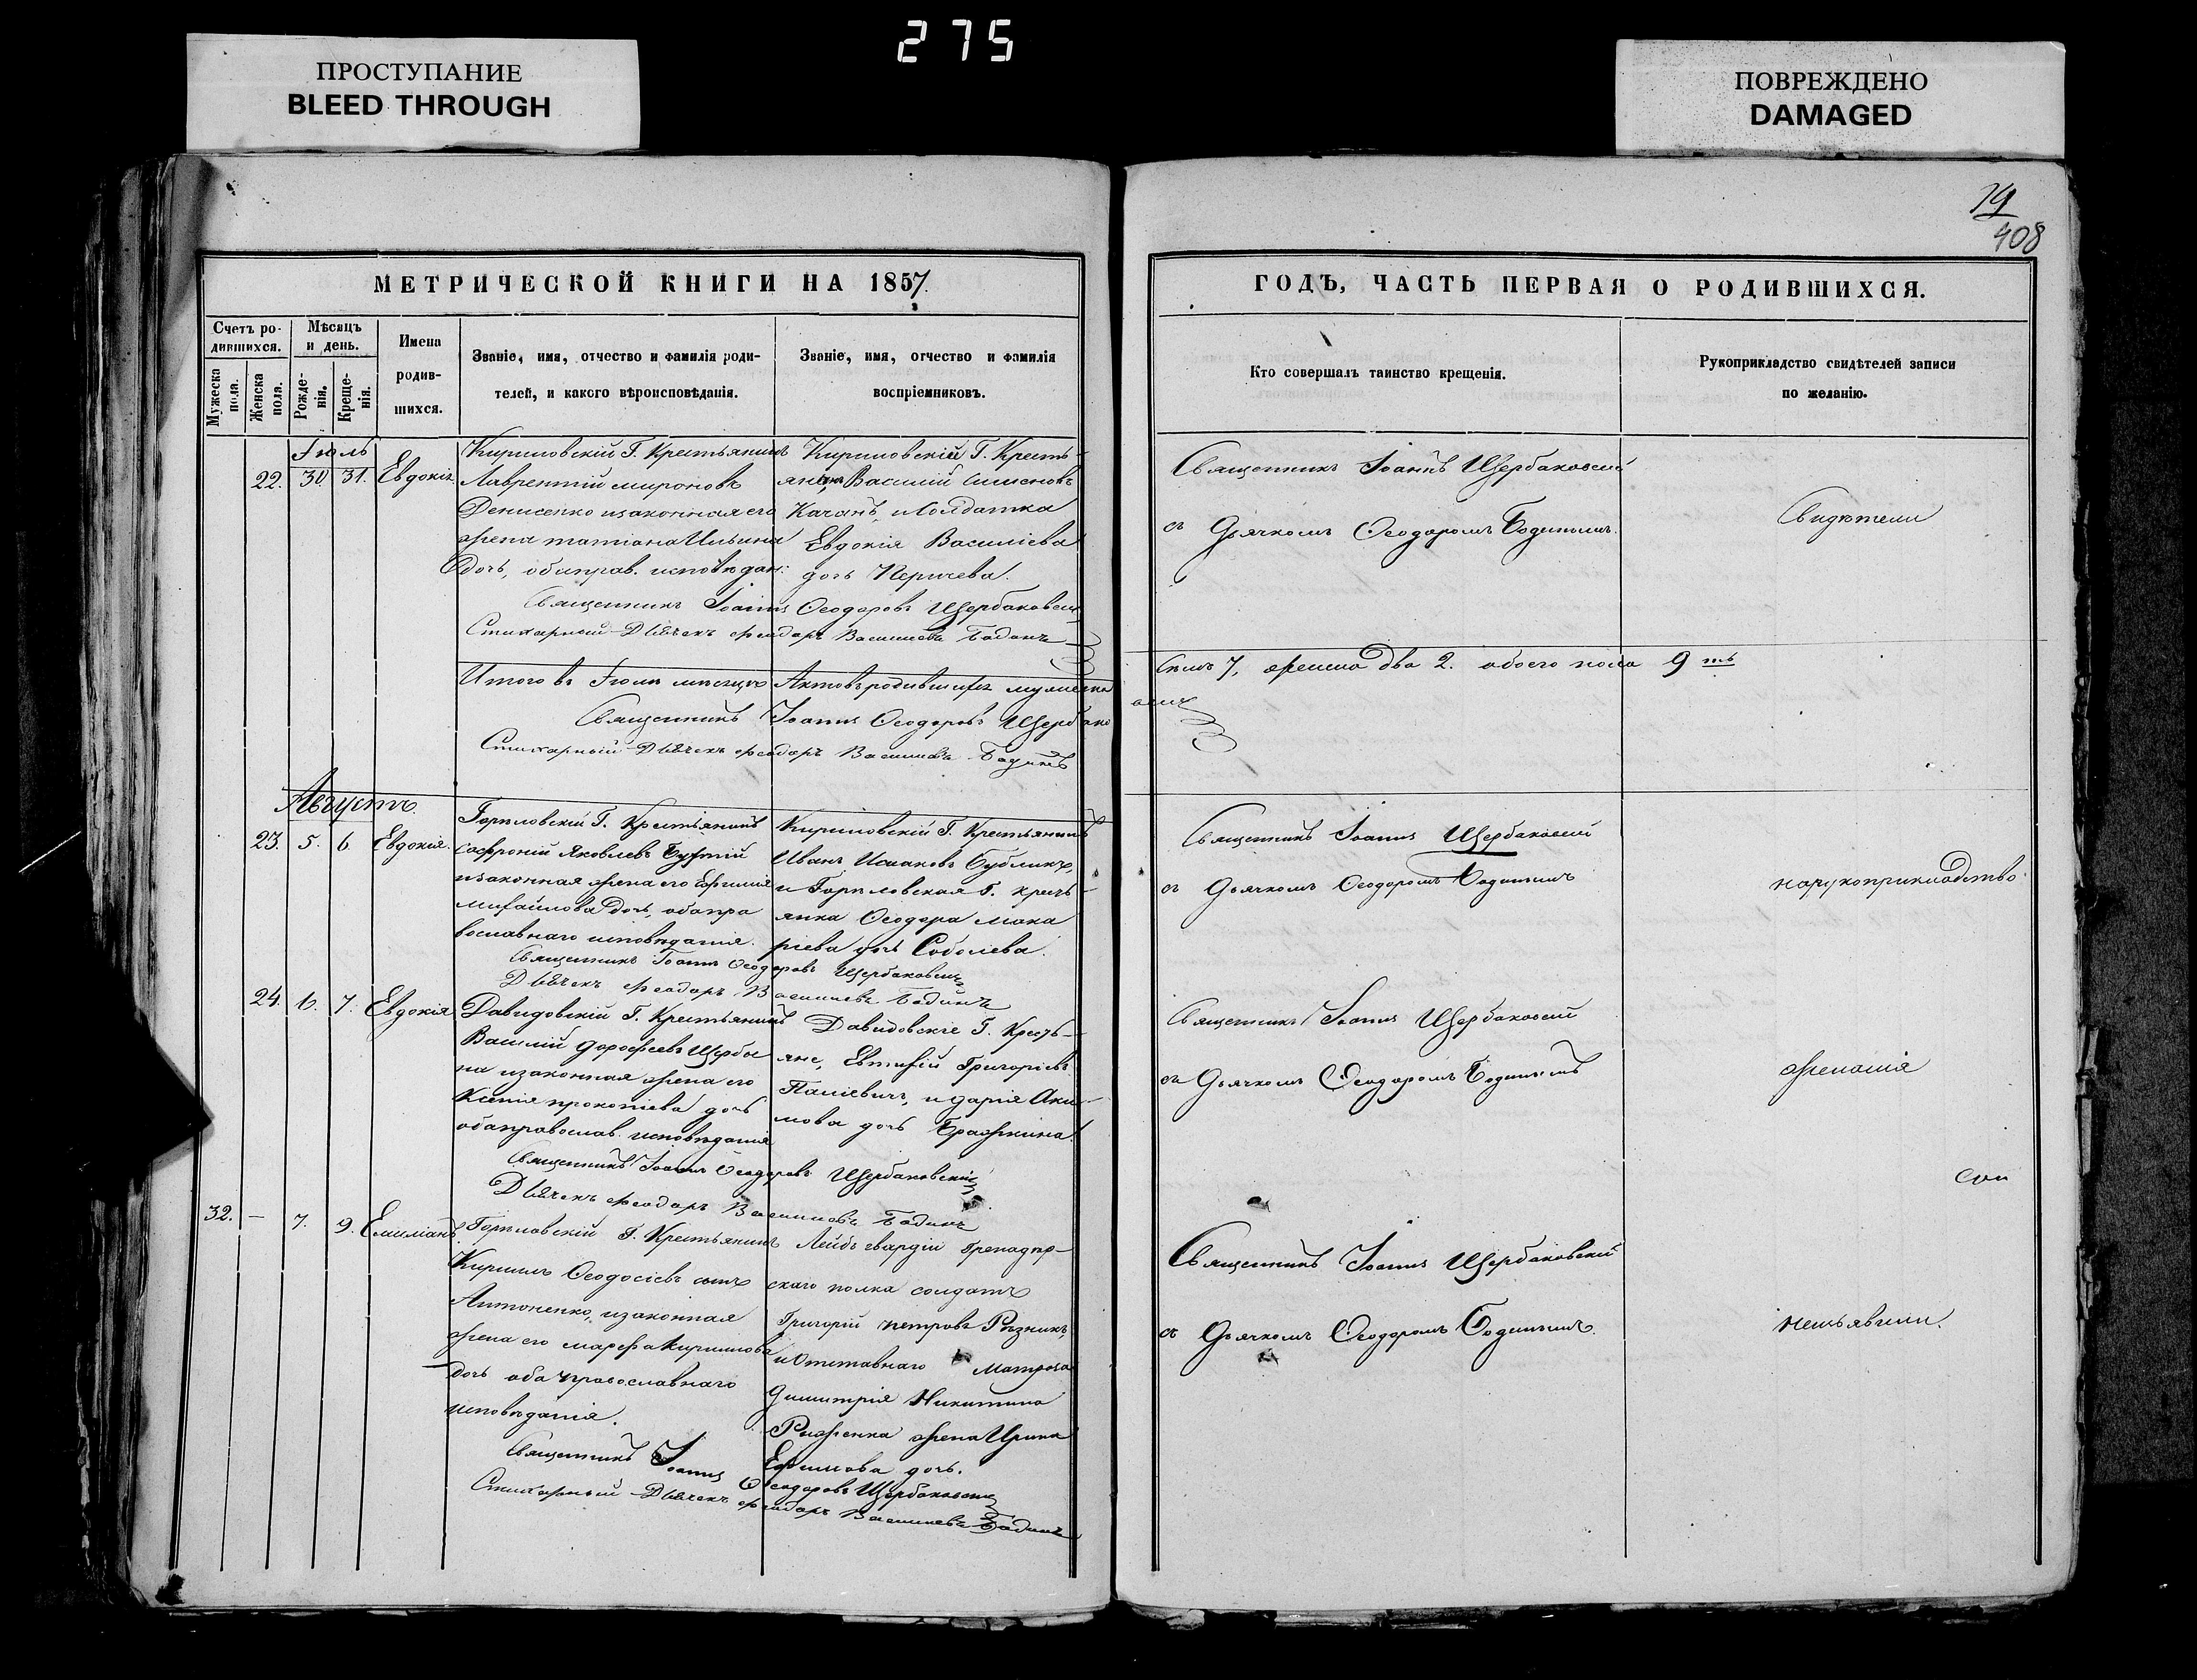 275
ПРОСТУПАНИЕ
BLEED THROUGH
ПОВРЕЖДЕНО
DAMAGED
19
408
МЕТРИЧЕСКОЙ КНИГИ НА 1857.
Счетъ ро-
дившихся.
Мужеска
пола.
Женска
пола.
Мѣсяцъ
и день.
Рожде-
нія.
Креще-
нія.
Имена
родив-
шихся.
Званіе, имя, отчество и фамилія роди-
телей, и какого вѣроисповѣданія.
Званіе, имя, отчество и фамилія
воспріемниковъ.
Іюль
22. 30. 31. Евдокія
Кириловскій Г. Крестьянинъ
Лаврентій мироновъ
Денисенко изаконная его
жена татіана Ильина
дочь, обаправ. исповѣдан:
Кириловскій Г. Кресть-
янинъ Василій Симеоновъ
Качанъ, иСолдатка
Евдокія Василіева
дочь Перичева.
Священникъ Іоаннъ Ѳеодоровъ Щербаковскій
Стихарный Дьячекъ Феодоръ Васильевъ Бодинъ
Итого въ Іюлѣ мѣсяцѣ Актовъ родившихся мужеска
Священникъ Іоаннъ Ѳеодоровъ Щербако
Стихарный Дьячекъ Феодоръ Васильевъ Бодинъ
Августъ.
23. 5. 6. Евдокія.
Горѣловскій Г. Крестьянинъ
Софроній Яковлевъ
изаконная жена его Ефимія
михайлова дочь, обапра
вославнаго исповѣданія.
Кириловскій Г. Крестьянинъ
Иванъ Исааковъ Бубликъ,
и Горѣловская Г. кресть-
янка Ѳеодора мака
ріева дочь Соболева.
Священникъ Іоаннъ Ѳеодоровъ Щербаковскій
Дьячекъ Феодоръ Васильевъ Бодинъ
24. 6. 7. Евдокія
Давидовскій Г. Крестьянинъ
Василій дорофеевъ Щерби
на изаконная жена его
Ксенія прокопіева дочь
обаправослав. исповѣданія
Давидовскіе Г. Кресть-
яне, Евтихій Григоріевъ
Паліевичъ, и дарія Аки-
мова дочь Бражкина.
Священникъ Іоаннъ Ѳеодоровъ Щербаковскій
Дьячекъ Феодоръ Васильевъ Бодинъ
32. — 7. 9. Емиліанъ.
Горѣловскій Г. Крестьянинъ
Кирилъ Ѳеодосіевъ сынъ
Антоненко, изаконная
жена его марфа Кирилова
дочь оба православнаго
исповѣданія.
Лейбъ гвардіи гренадер-
скаго полка солдатъ
Григорій петровъ Рѣзникъ,
и Отставнаго Матроса
Димитрія Никитина
Рыженка жена Ирина
Ефимова дочь.
Священникъ Іоаннъ Ѳеодоровъ Щербаковскій
Стихарный Дьячекъ Феодоръ Васильевъ Бодинъ
ГОДЪ, ЧАСТЬ ПЕРВАЯ О РОДИВШИХСЯ.
Кто совершалъ таинство крещенія.
Рукоприкладство свидѣтелей записи
по желанію.
Священникъ Іоаннъ Щербаковскій
съ Дьячкомъ Ѳеодоромъ Бодинымъ.
Свидѣтели
7, женска два 2. обоего пола 9 ть
Священникъ Іоаннъ Щербаковскій
съ Дьячкомъ Ѳеодоромъ Бодинымъ
нарукоприкладство
Священникъ Іоаннъ Щербаковскій
съ Дьячкомъ Ѳеодоромъ Бодинымъ
желанія
Священникъ Іоаннъ Щербаковскій
съ Дьячкомъ Ѳеодоромъ Бодинымъ.
неизъявили.